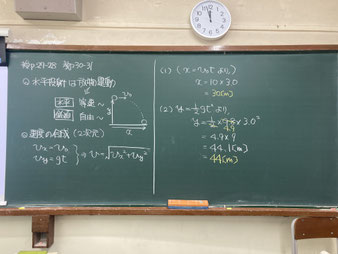 教p.27-28 教p.30-31
◎水平投射は放物運動
水平 等速~
鉛直 自由~
v₀
y
x
◎速度の合成(2次元)
vx = v₀
vy = gt
⇒ v = √vx² + vy²
(1) (x = v₀t より)
x = 10 × 3.0
= 30[m]
(2) y = ½gt² より
y = ½ × 9.8 × 3.0²
4.9
= 4.9 × 9
= 44.1[m]
= 44[m]